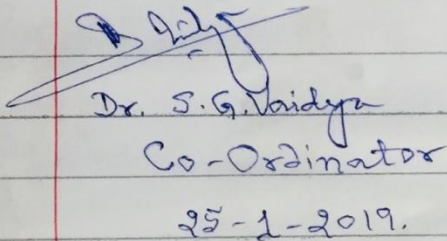 Dr. S. G. Vaidya
Co-Ordinator
25-1-2019.